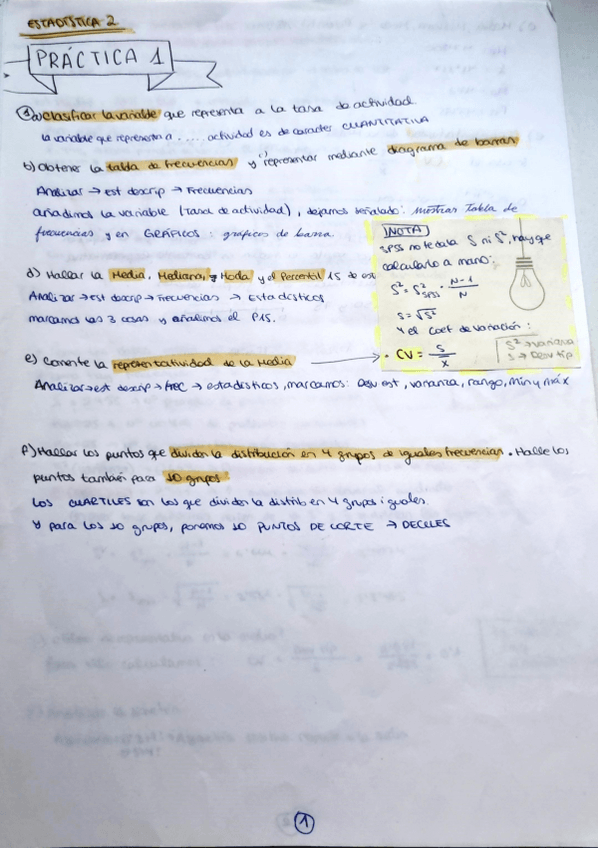 ESTADÍSTICA 2
PRÁCTICA 1
1 a) Clasificar la variable que representa a la tasa de actividad.
La variable que representa a ...... actividad es de carácter CUANTITATIVA
b) Obtener la tabla de frecuencias y representar mediante diagrama de barras
Analizar → est descrip → Frecuencias
añadimos la variable (Tasa de actividad), dejamos señalado: mostrar Tabla de
frecuencias y en GRÁFICOS: gráficos de barra.
d) Hallar la Media, Mediana, Moda y el Percentil 15 de
Analizar → est descrip → Frecuencias → Estadísticos
marcamos las 3 cosas y añadimos el P15.
NOTA
SPSS no te da la S ni S², hay que
calcularlo a mano:
S² = S²SPSS · N-1 / N
S = √S²
Y el coef de variación:
· CV = S / x
S² → varianza
S → Desv tip
e) Comente la representatividad de la Media
Analizar → est descrip → frec → estadísticos, marcamos: Desv est, varianza, rango, mín y máx
f) Hallar los puntos que dividen la distribución en 4 grupos de iguales frecuencias. Halle los
puntos también para 10 grupos
Los CUARTILES son los que dividen la distrib en 4 grupos iguales.
Y para los 10 grupos, ponemos 10 PUNTOS DE CORTE → DECILES
1